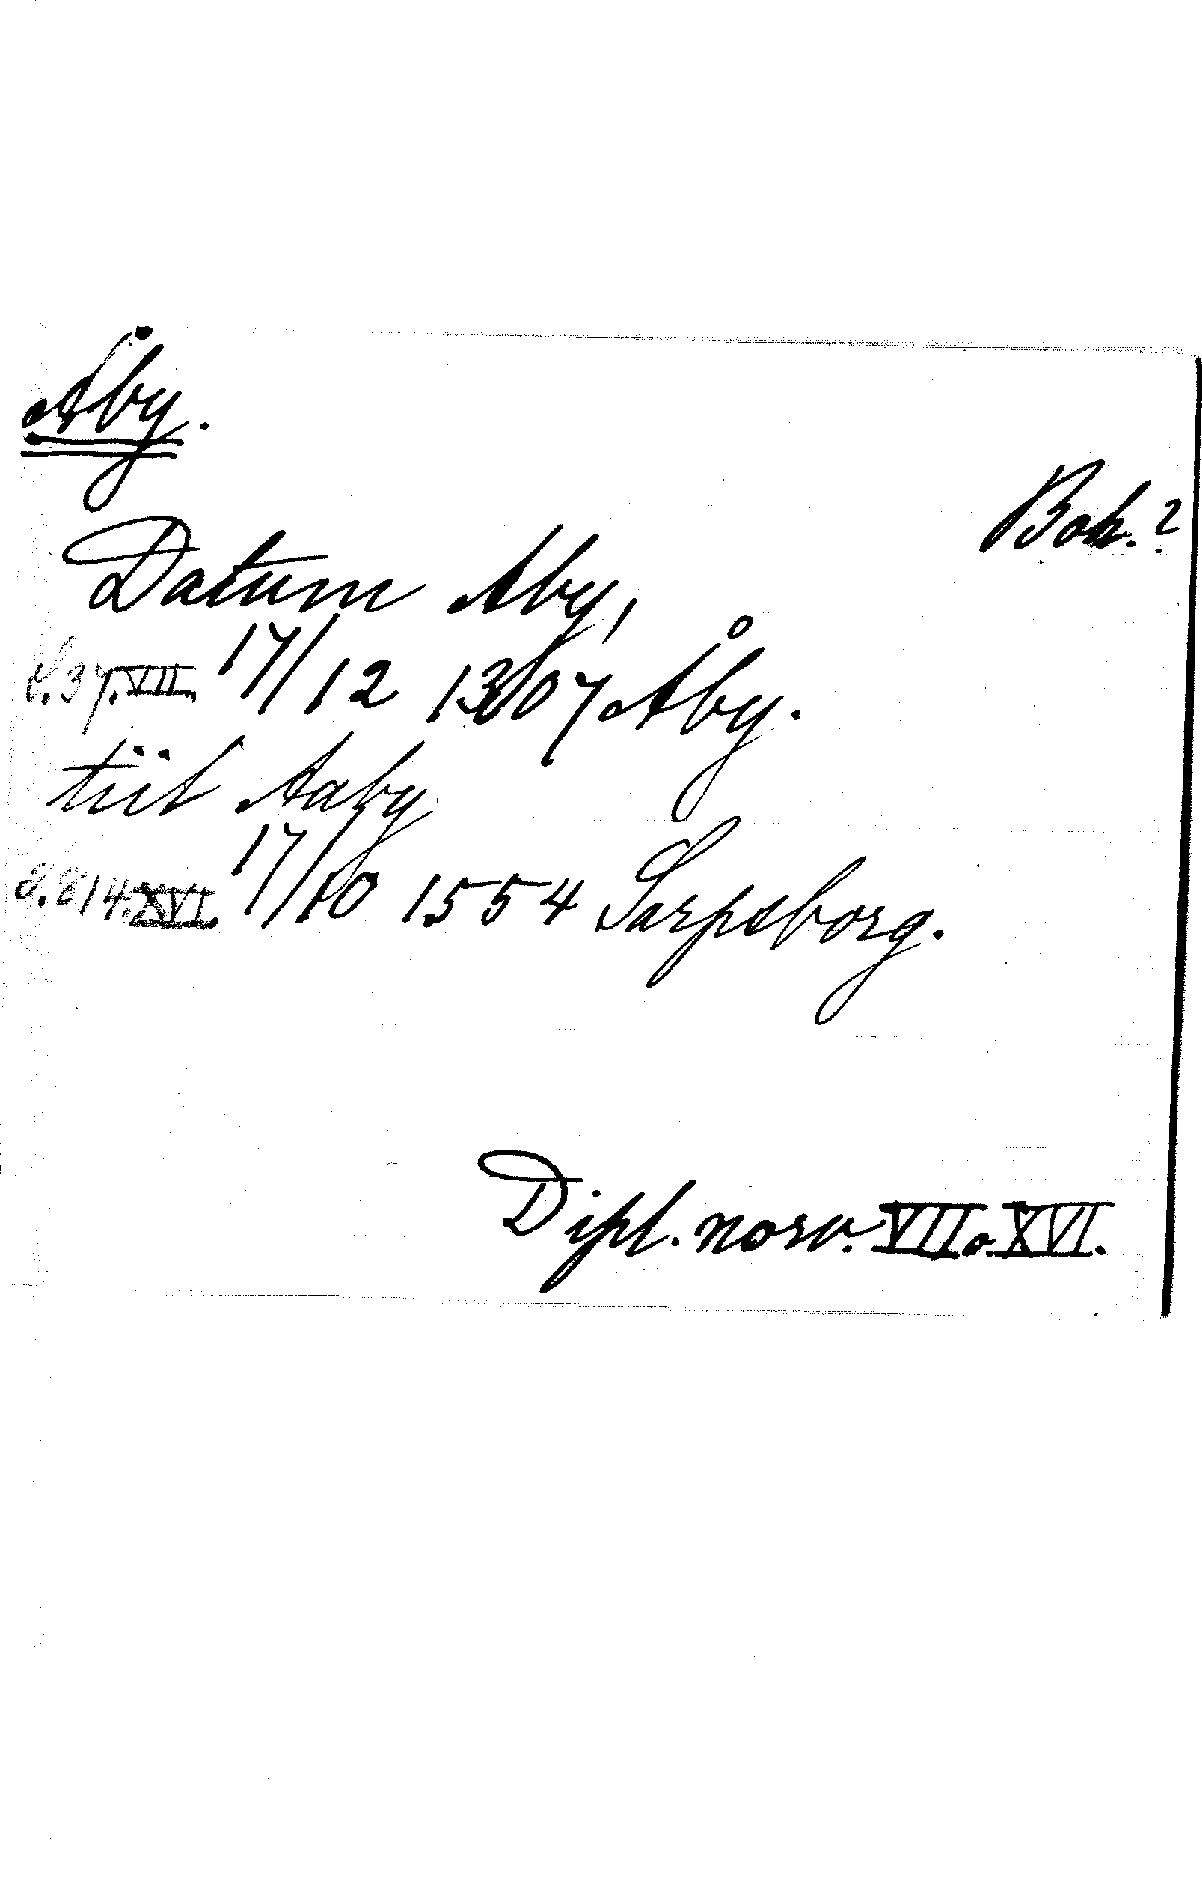 Åby.
Boh.?
Datum Aby,
S.37.VII. 17/12 1307 Åby.
tiit Aaby
S.814.XVI. 17/10 1554 Sarpsborg.
Dipl. norv. VII o. XVI.